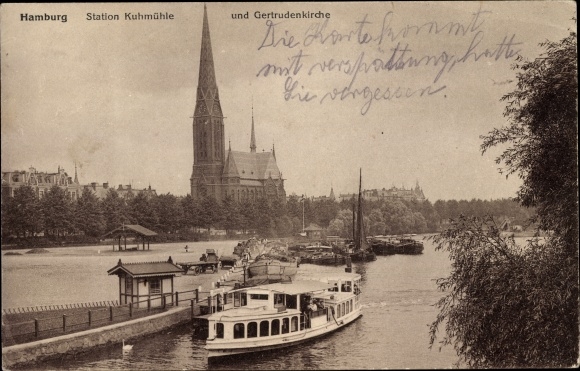 Hamburg Station Kuhmühle und Gertrudenkirche
Die Karte kommt
mit verspättung, hatte
Sie vergessen.